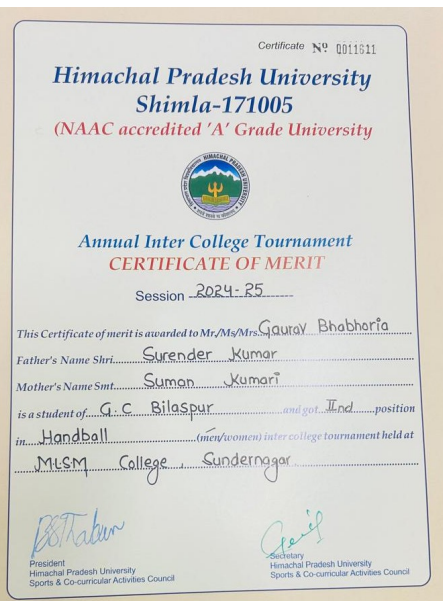 Certificate Nº 0011611
Himachal Pradesh University
Shimla-171005
(NAAC accredited 'A' Grade University
HIMACHAL PRADESH UNIVERSITY
Annual Inter College Tournament
CERTIFICATE OF MERIT
Session 2024-25
This Certificate of merit is awarded to Mr./Ms/Mrs. Gaurav Bhabhoria
Father's Name Shri. Surender Kumar
Mother's Name Smt. Suman Kumari
is a student of G.C Bilaspur and got IInd position
in Handball (men/women) inter college tournament held at
MLSM College, Sundernagar
President
Himachal Pradesh University
Sports & Co-curricular Activities Council
Secretary
Himachal Pradesh University
Sports & Co-curricular Activities Council